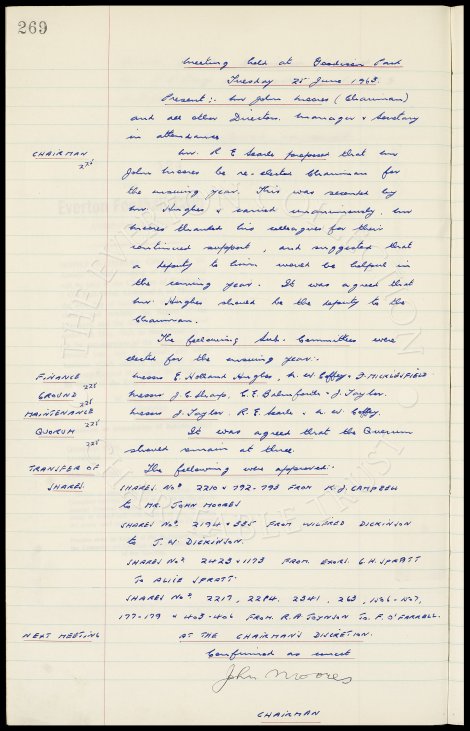 269
Meeting held at Goodison Park
Tuesday 25 June 1963.
Present:- Mr John Moores (Chairman)
and all other Directors, Manager & Secretary
in attendance
CHAIRMAN Mr. R E Searle proposed that Mr
225
John Moores be re-elected Chairman for
the ensuing year. This was seconded by
Mr. Hughes & carried unanimously. Mr
Moores thanked his colleagues for their
continued support, and suggested that
a deputy to him would be helpful in
the coming year. It was agreed that
Mr. Hughes should be the deputy to the
Chairman.
The following Sub. Committees were
elected for the ensuing year.
FINANCE Messrs E. Holland Hughes, N. W. Coffey & F. MICKLESFIELD
225
GROUND Messrs J. C. Sharp, C. E. Balmforth & J. Taylor.
225
MAINTENANCE Messrs J. Taylor. R. E. Searle & N. W. Coffey.
225
QUORUM It was agreed that the Quorum
225
should remain at three.
TRANSFER OF The following were approved.
SHARES SHARES Nos. 2210 & 792-793 FROM R. J. CAMPBELL
to MR. JOHN MOORES
SHARES Nos. 2194 & 385 FROM WILFRED DICKINSON
to J. W DICKINSON.
SHARES Nos 2423 & 1173 FROM EXORS. G. H. SPRATT
To ALICE SPRATT.
SHARES Nos 2217, 2284, 2341, 263, 1506-1507,
177-179 & 403-406 FROM R. A JOYNSON To F. O'FARRELL.
NEXT MEETING AT THE CHAIRMAN'S DISCRETION.
Confirmed as correct
John Moores
CHAIRMAN